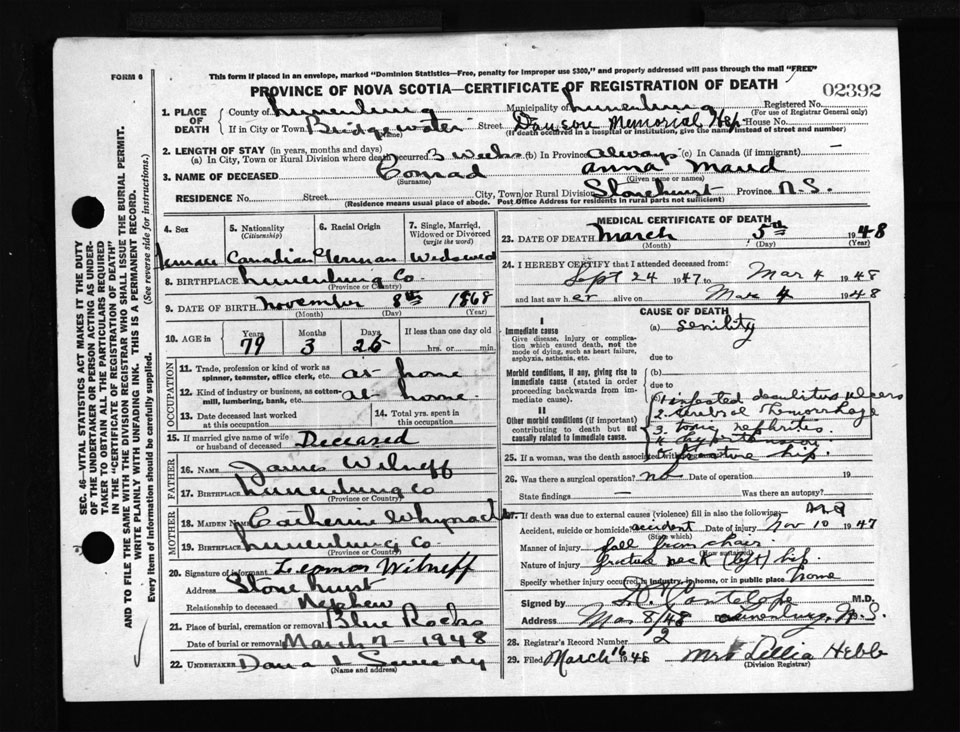 FORM 6
This form if placed in an envelope, marked "Dominion Statistics—Free, penalty for improper use $300," and properly addressed will pass through the mail "FREE"
PROVINCE OF NOVA SCOTIA—CERTIFICATE OF REGISTRATION OF DEATH
02392
1. PLACE OF DEATH
County of Lunenburg Municipality of Lunenburg Registered No.
(For use of Registrar General only)
If in City or Town Bridgewater Street Dawson Memorial Hsp. House No.
(Name) (If death occurred in a hospital or institution, give the name instead of street and number)
2. LENGTH OF STAY (in years, months and days)
(a) In City, Town or Rural Division where death occurred 3 weeks (b) In Province always (c) In Canada (if immigrant) —
3. NAME OF DECEASED Conrad Anna Maud
(Surname) (Given name or names)
RESIDENCE No. Street City, Town or Rural Division Stonehurst Province N.S.
(Residence means usual place of abode. Post Office Address for residents in rural parts not sufficient)
4. Sex
5. Nationality (Citizenship)
6. Racial Origin
7. Single, Married, Widowed or Divorced (write the word)
Female Canadian German Widowed
8. BIRTHPLACE Lunenburg Co.
(Province or Country)
9. DATE OF BIRTH November 8th 1868
(Month) (Day) (Year)
10. AGE in Years Months Days If less than one day old
79 3 26 hrs. or min.
OCCUPATION
11. Trade, profession or kind of work as spinner, teamster, office clerk, etc. at home
12. Kind of industry or business, as cotton-mill, lumbering, bank, etc. at home.
13. Date deceased last worked at this occupation
14. Total yrs. spent in this occupation
15. If married give name of wife or husband of deceased Deceased
FATHER
16. NAME James Wilneff
17. BIRTHPLACE Lunenburg Co
(Province or Country)
MOTHER
18. MAIDEN NAME Catherine Whynacht
19. BIRTHPLACE Lunenburg Co.
(Province or Country)
20. Signature of informant Leaman Wilneff
Address Stonehurst
Relationship to deceased Nephew
21. Place of burial, cremation or removal Blue Rocks
Date of burial or removal March 7 - 1948
22. UNDERTAKER Dana L Sweeny
(Name and address)
MEDICAL CERTIFICATE OF DEATH
23. DATE OF DEATH March 5th 1948
(Month) (Day) (Year)
24. I HEREBY CERTIFY that I attended deceased from:
Sept 24 1947 to Mar 4 1948
and last saw her alive on Mar 4 1948
CAUSE OF DEATH
I
Immediate cause
Give disease, injury or complication which caused death, not the mode of dying, such as heart failure, asphyxia, asthenia, etc.
(a) senility
due to
Morbid conditions, if any, giving rise to immediate cause (stated in order proceeding backwards from immediate cause).
(b)
due to
II
Other morbid conditions (if important) contributing to death but not causally related to immediate cause.
1 infected decubitus ulcers
2. Cerebral Hemorrhage
3. nephritis.
4. hypertension
fracture hip.
25. If a woman, was the death associated with
26. Was there a surgical operation? no Date of operation 19
State findings — Was there an autopsy?
27. If death was due to external causes (violence) fill in also the following:
Accident, suicide or homicide? accident Date of injury Nov 10 1947
(State which)
Manner of injury fall from chair
(How sustained)
Nature of injury fracture neck (left) hip.
Specify whether injury occurred in industry, in home, or in public place home
Signed by M.D.
Address Mar 8/48 Lunenburg, N.S.
28. Registrar's Record Number 2
29. Filed March 16 1948 Mrs Lillia Hebb
(Division Registrar)
SEC. 46—VITAL STATISTICS ACT MAKES IT THE DUTY
OF THE UNDERTAKER OR PERSON ACTING AS UNDER-
TAKER TO OBTAIN ALL THE PARTICULARS REQUIRED
IN THE "CERTIFICATE OF REGISTRATION OF DEATH"
AND TO FILE THE SAME WITH THE DIVISION REGISTRAR WHO SHALL ISSUE THE BURIAL PERMIT.
WRITE PLAINLY WITH UNFADING INK. THIS IS A PERMANENT RECORD.
Every item of information should be carefully supplied. (See reverse side for instructions.)